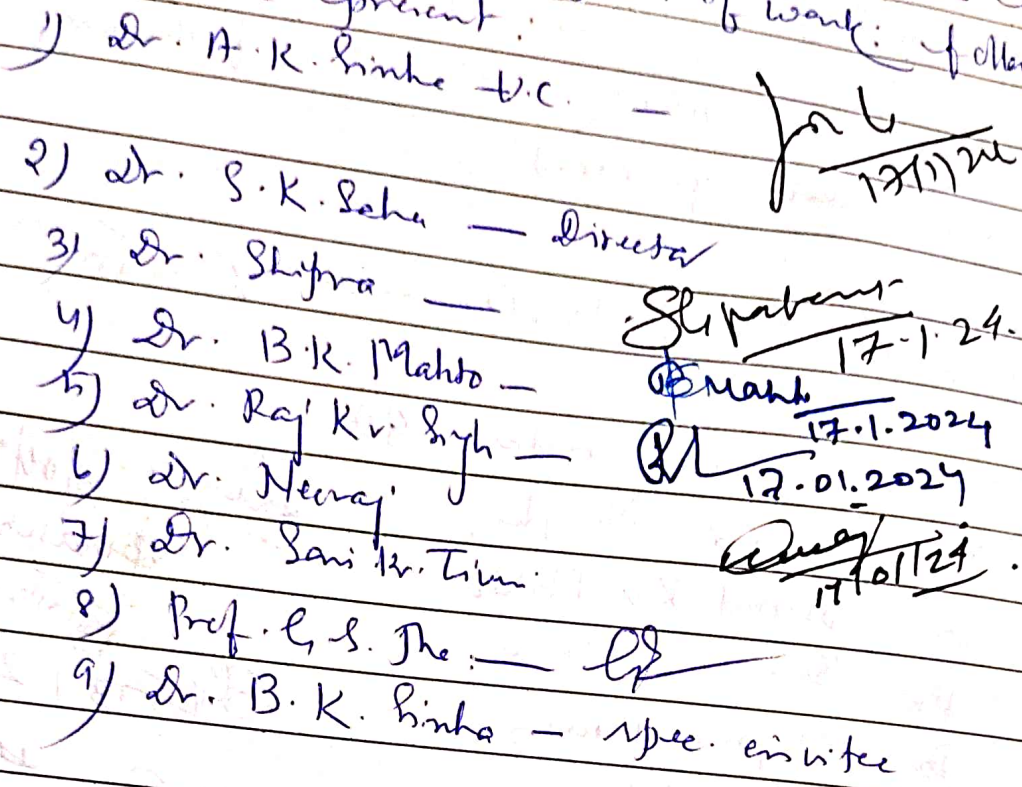 present : of work : of
1) Dr. A.K. Sinha V.C. — 17/1/24
2) Dr. S.K. Saha — Director
3) Dr. Shipra — 17.1.24.
4) Dr. B.K. Mahto — BMaht 17.1.2024
5) Dr. Raj Kr. Singh — 17.01.2024
6) Dr. Neeraj 17/01/24.
7) Dr. Kr.
8) Prof. G.S. Jha : —
9) Dr. B.K. Sinha — spec. einvitee